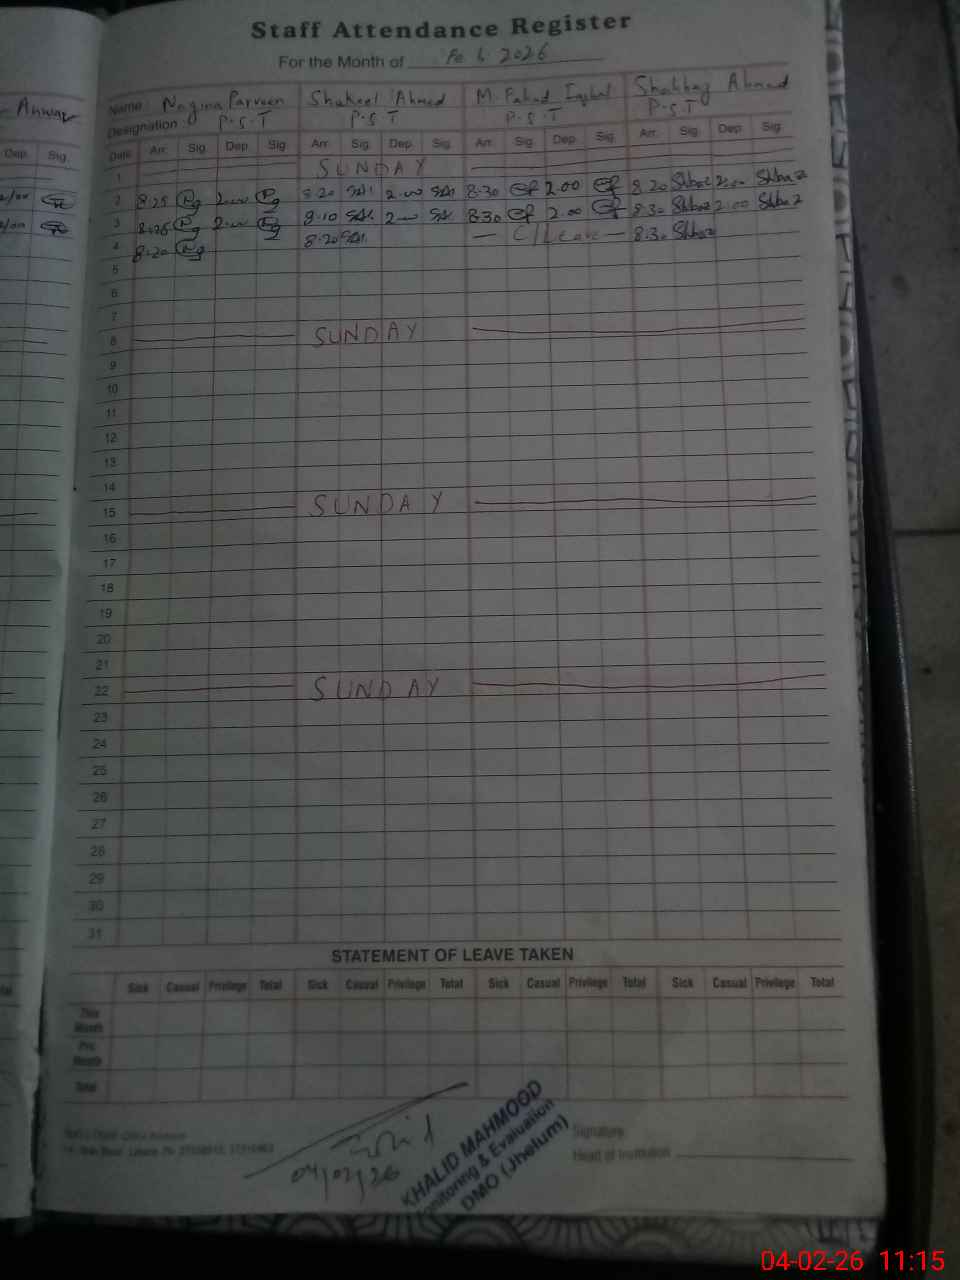 Staff Attendance Register
For the Month of Feb 2026
Anwar
Name: Nagina Parveen Shakeel Ahmed M. Fahad Iqbal Shahbaz Ahmad
Designation P.S.T P.S.T P.S.T P.S.T
Dep. Sig. Date Arr. Sig. Dep. Sig. Arr. Sig. Dep. Sig. Arr. Sig. Dep. Sig. Arr. Sig. Dep. Sig.
1 SUNDAY
2 8.25 2.00 8.20 2.00 8.30 2.00 8.20 Shbaz 2.00 Shbaz
3 8.25 2.00 8.10 2.00 8.30 2.00 8.30 Shbaz 2.00 Shbaz
4 8.20 8.20 — C/Leave — 8.30 Shbaz
5
6
7
8 SUNDAY
9
10
11
12
13
14
15 SUNDAY
16
17
18
19
20
21
22 SUNDAY
23
24
25
26
27
28
29
30
31
STATEMENT OF LEAVE TAKEN
Sick Casual Privilege Total Sick Casual Privilege Total Sick Casual Privilege Total Sick Casual Privilege Total
This Month
Pre. Month
Total
Signature
Head of Institution
04/02/26
KHALID MAHMOOD
Monitoring & Evaluation
DMO (Jhelum)
04-02-26 11:15